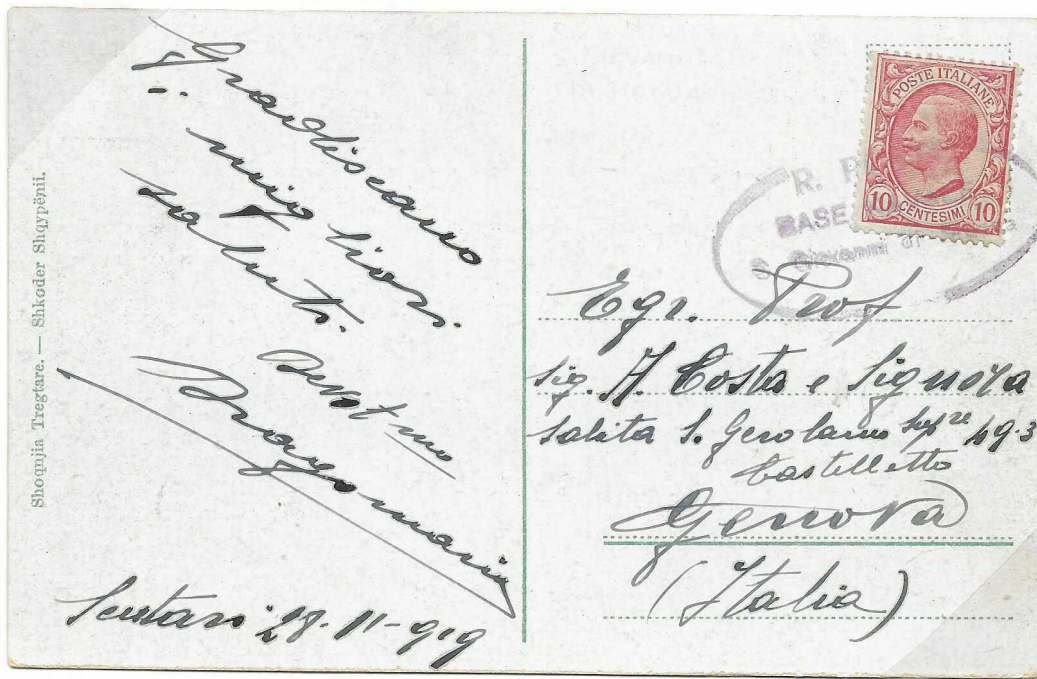 Shoqnjia Tregtare. — Shkoder Shqypënii.
Gradiscano
migliori
saluti.
Devotmo
Scutari 28-11-919
POSTE ITALIANE
10 CENTESIMI 10
R. P
BASE
S. Giovanni di
Egr. Prof
Sig. A. Costa e Signora
Salita S. Gerolamo Supre 49-3
Castelletto
Genova
(Italia)